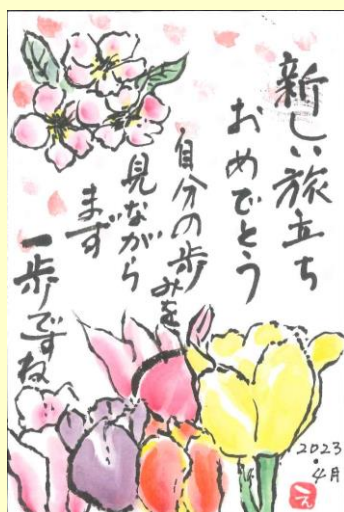 新しい旅立ち
おめでとう
自分の歩みを
見ながら
まず
一歩ですね
2023
・4月